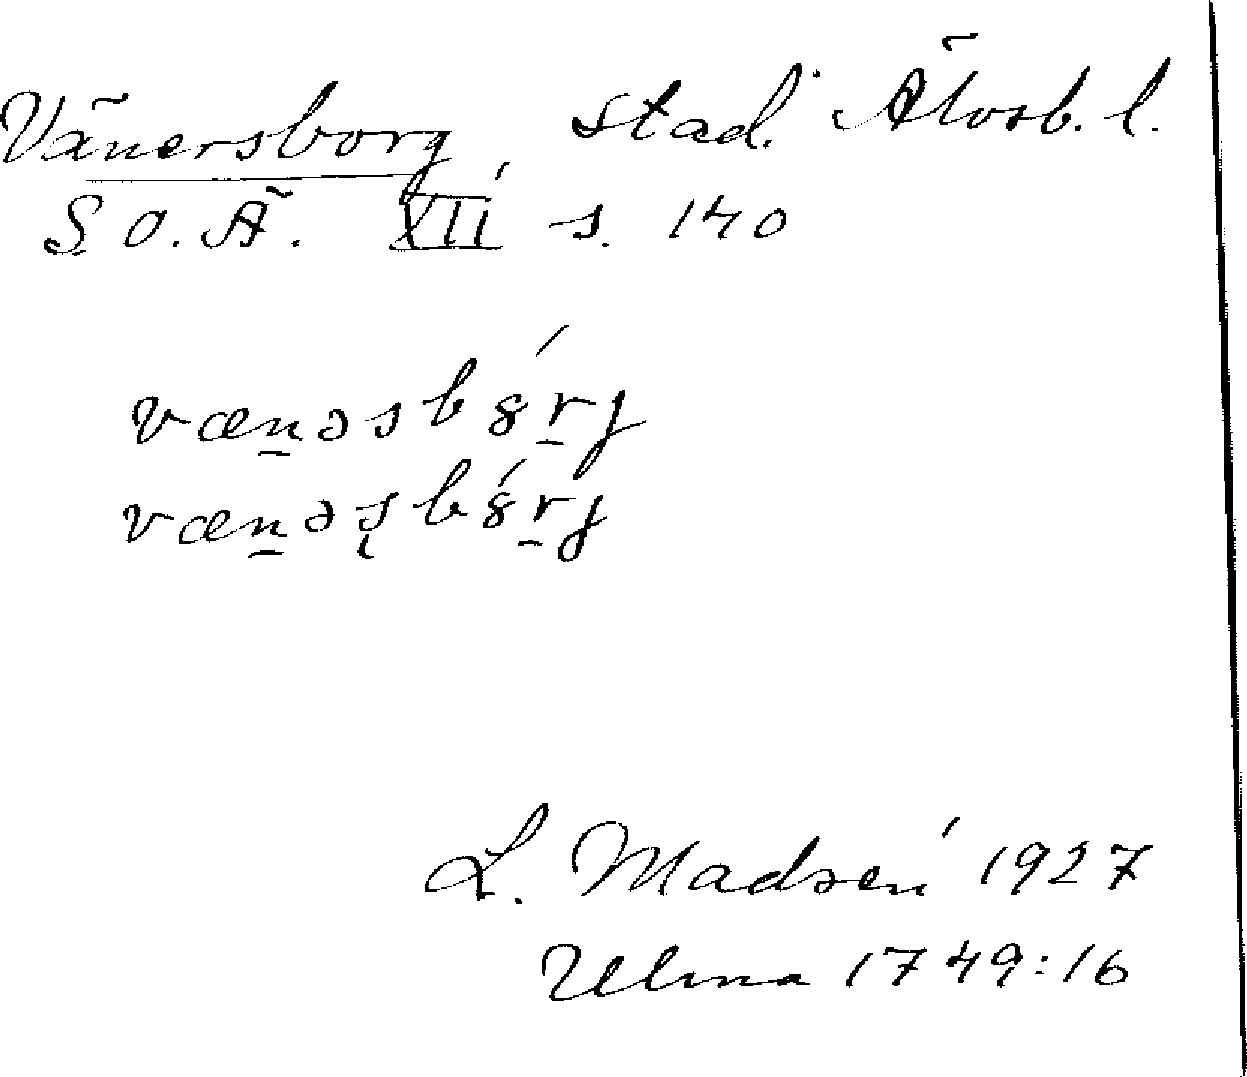 Vänersborg stad. Älvsb. l.
S.O.Ä. XII s. 140
væn̠əsbȣ́r̠j
væn̠əʂbȣ́r̠j
L. Madsén 1927
Ulma 1749:16